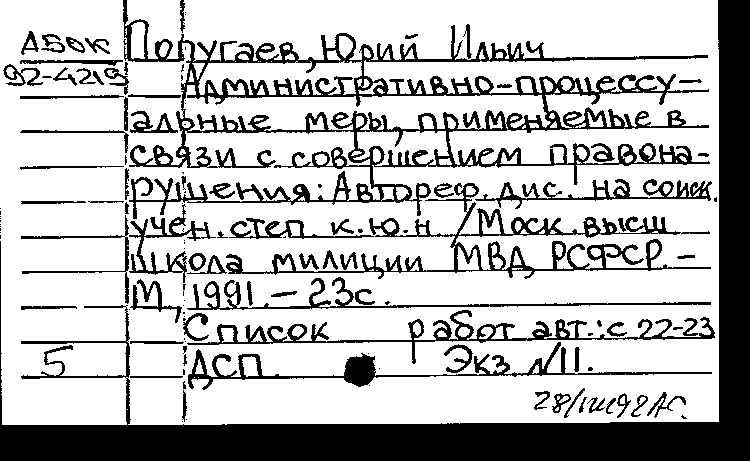 ДБОК Попугаев, Юрий Ильич
92-4219 Административно-процессу-
альные меры, применяемые в
связи с совершением правона-
рушения: Автореф. дис. на соиск.
учен. степ. к.ю.н /Моск. высш
школа милиции МВД РСФСР. -
М., 1991. - 23с.
Список работ авт.: с 22-23
5 ДСП. Экз. N11.